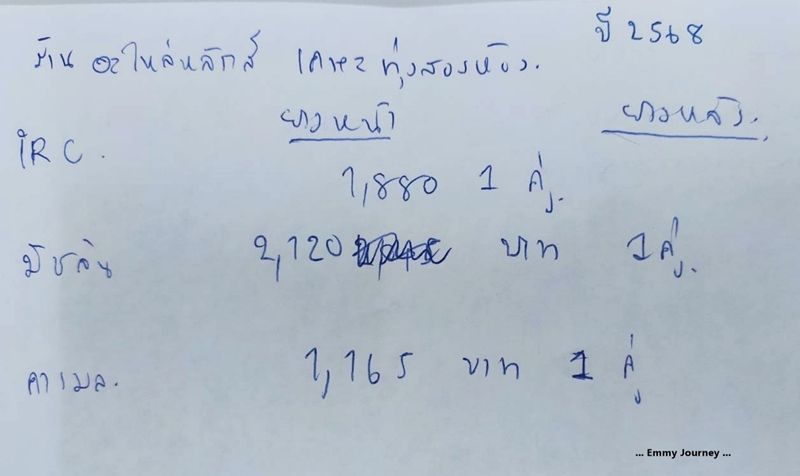 ปี 2568
ร้าน อะไหล่หลักสี่ เคหะ ทุ่งสองห้อง.
ยางหน้า ยางหลัง.
IRC.
1,880 1 คู่.
มิชลิน 2,120 บาท 1 คู่.
คาเมล. 1,165 บาท 1 คู่
... Emmy Journey ...